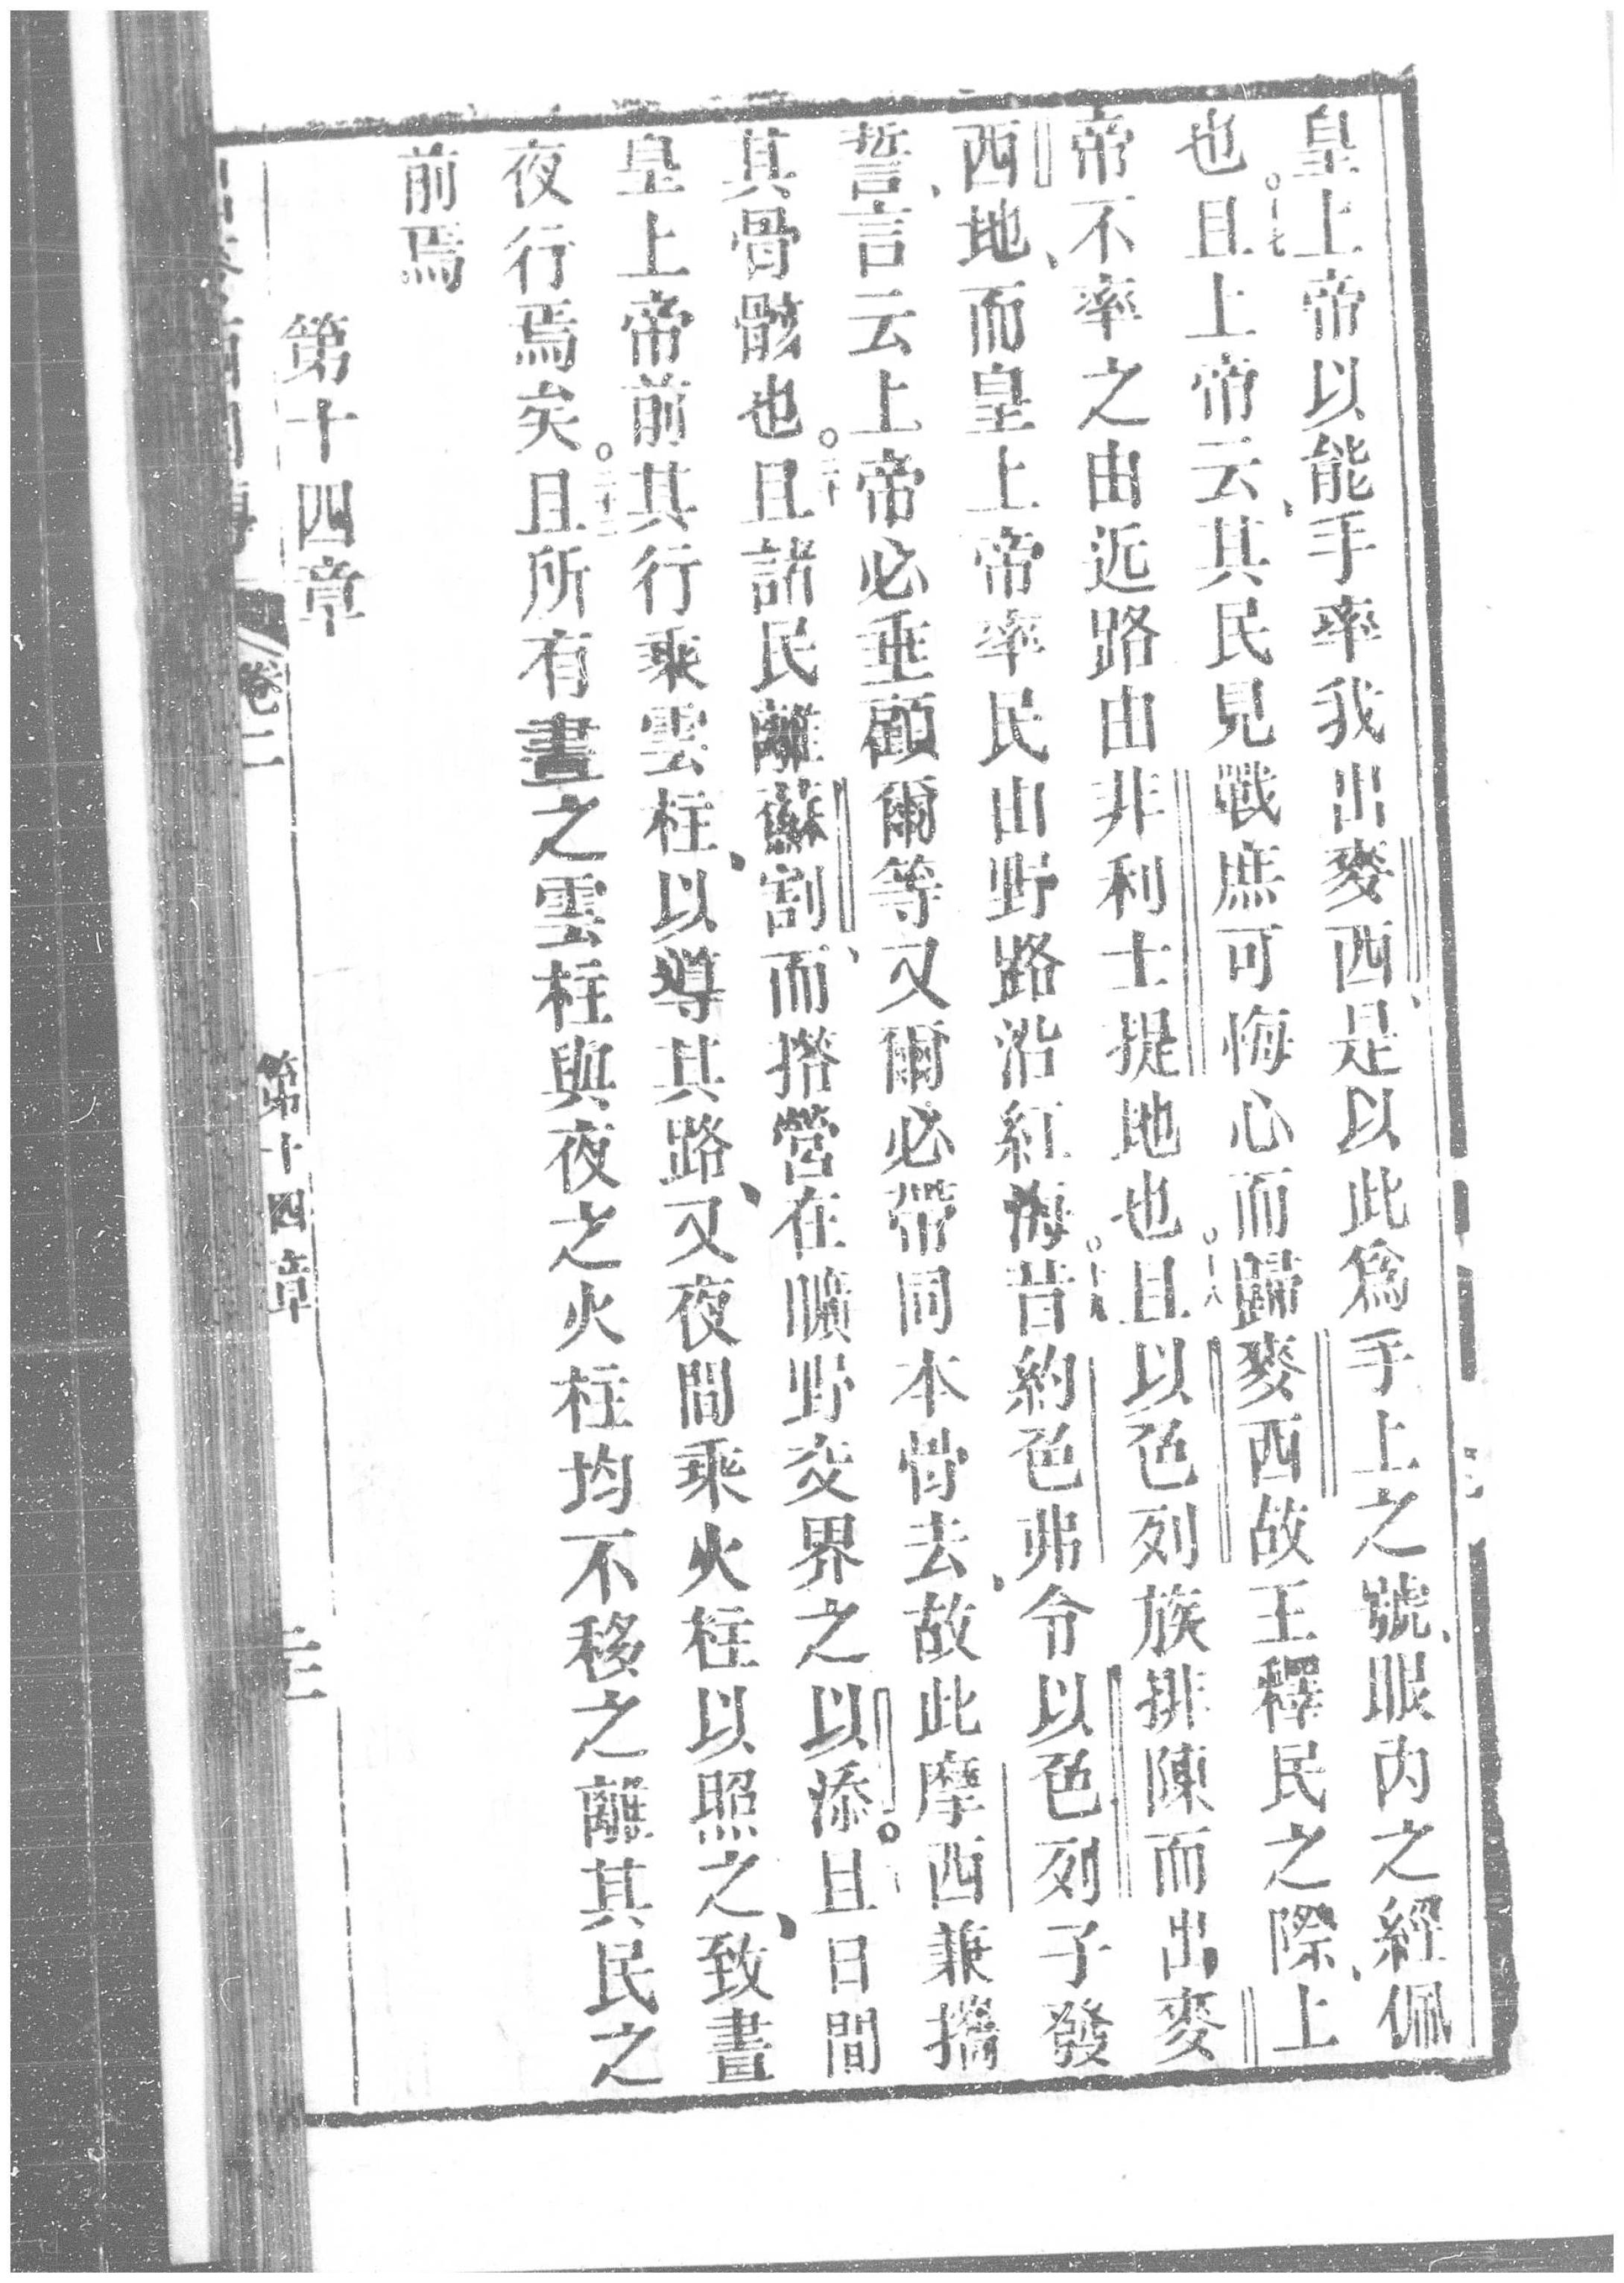 皇上帝以能手率我出麥西、是以此爲手上之號、眼內之經佩
也。十七且上帝云、其民見戰庶可悔心而歸麥西故王釋民之際、上
帝不率之由近路由非利士提地也。十八且以色列族排陳而出麥
西地、而皇上帝率民由野路沿紅海。十九昔約色弗令以色列子發
誓、言云上帝必垂顧爾等又爾必帶同本骨去、故此摩西兼攜
其骨骸也。二十且諸民離蘇割、而搭營在曠野交界之以添。且日間
皇上帝前其行乘雲柱、以導其路、又夜間乘火柱以照之、致晝
夜行焉矣。二十二且所有晝之雲柱與夜之火柱均不移之離其民之
前焉
第十四章
卷二 第十四章